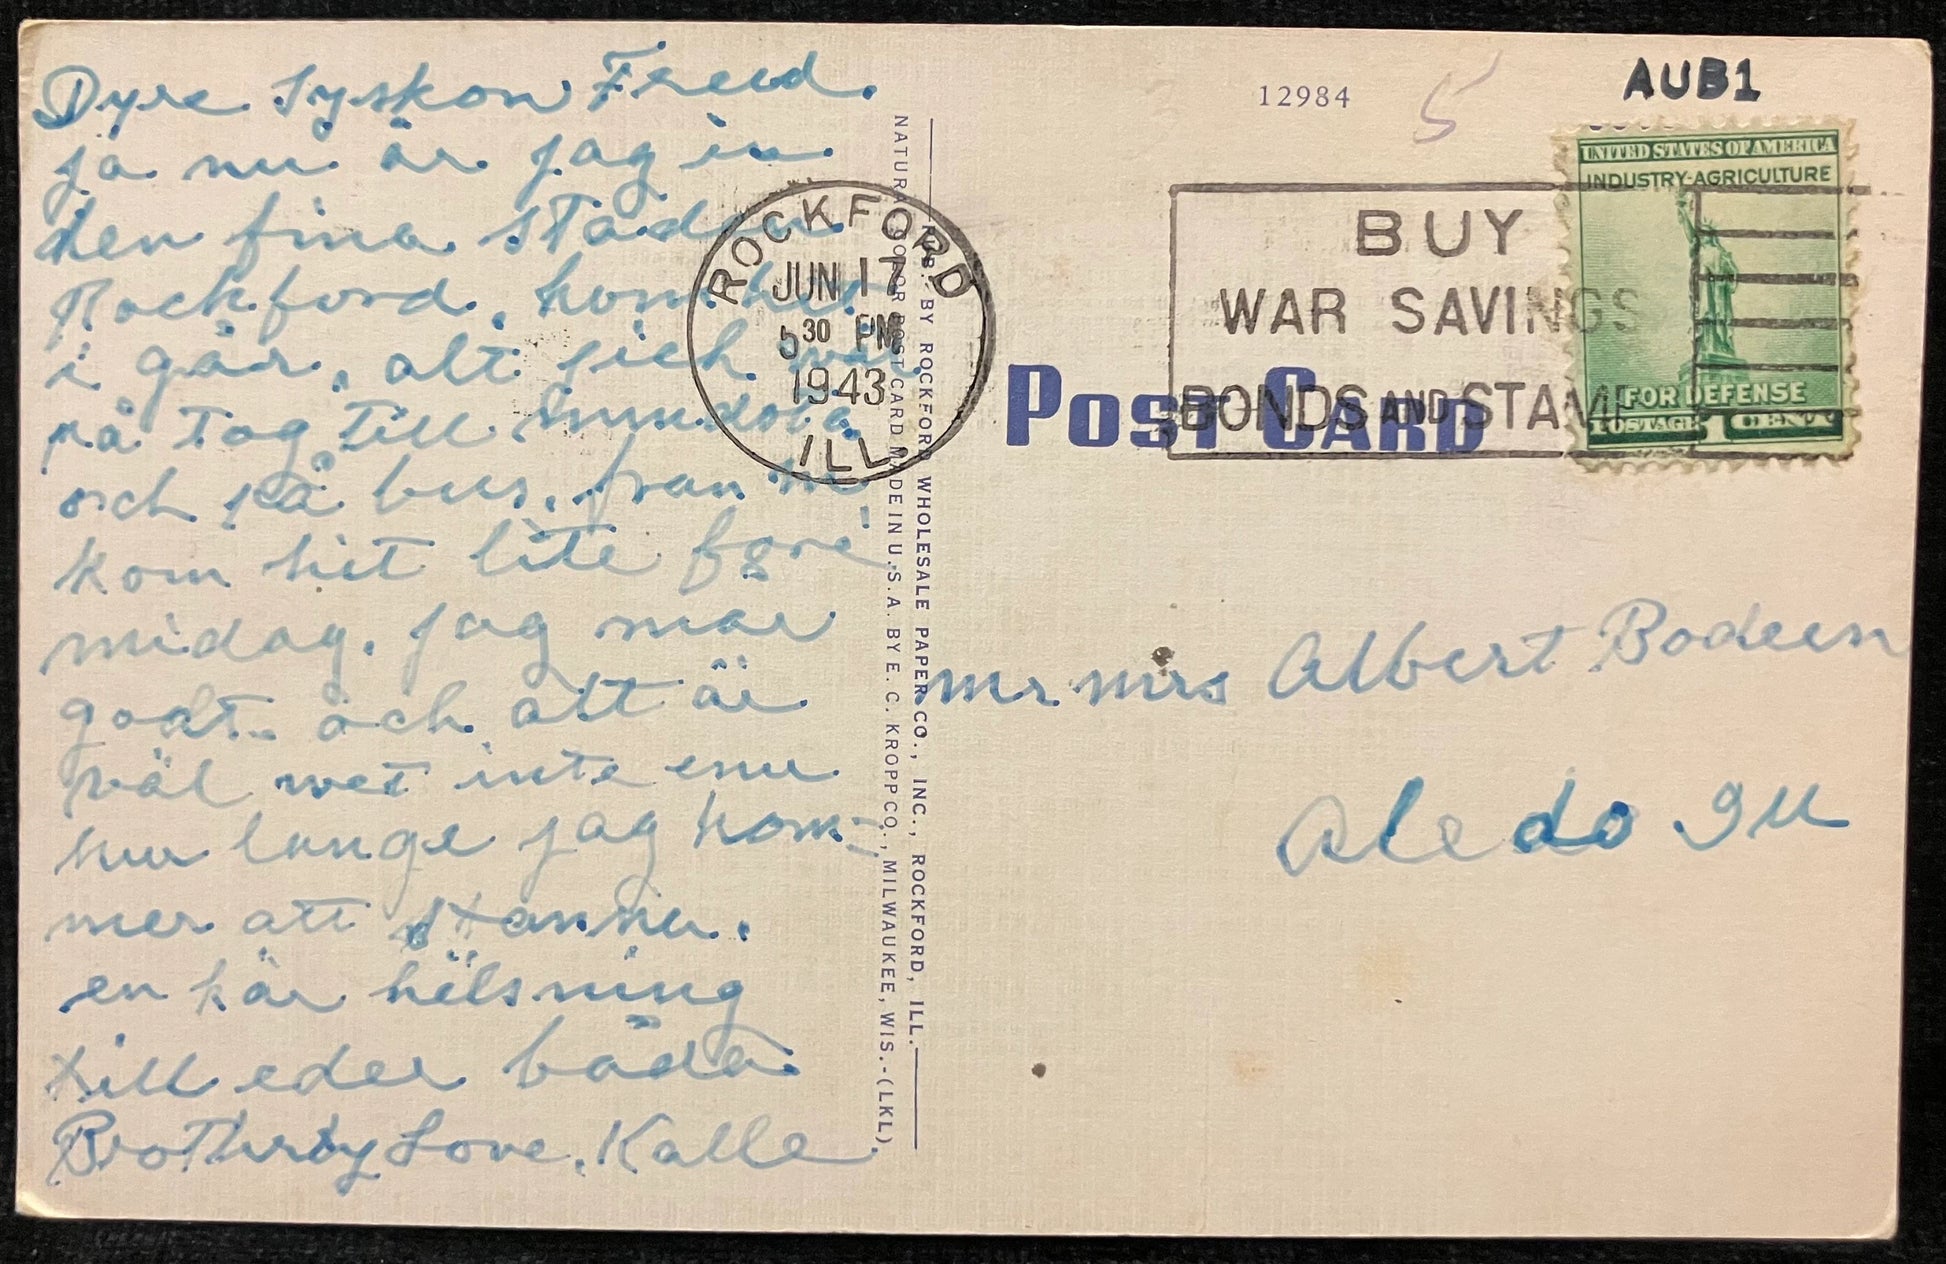 Dyre Syskon Freud.
ja nu är jag in
den fina Staden
Rockford, kom hit
i går, alt gick
på Tog, Till
och på bus, fran
kom hit lite fore
midag. jag mar
godt. och alt är
väl wet inte enu
hur lange jag kom=
mer att stanna.
en kär hälsning
till eder båda
Brotherly Love, Kalle
NATURAL COLOR POST CARD MADE IN U.S.A. BY E. C. KROPP CO., MILWAUKEE, WIS.-(LKL)
PUB. BY ROCKFORD WHOLESALE PAPER CO., INC., ROCKFORD, ILL.
12984
5
AUB1
ROCKFORD
JUN 17
5 30 PM
1943
ILL.
BUY
WAR SAVINGS
BONDS AND STAMPS
UNITED STATES OF AMERICA
INDUSTRY-AGRICULTURE
FOR DEFENSE
POSTAGE 1 CENT
POST CARD
mr mrs Albert Bodeen
Aledo Ill